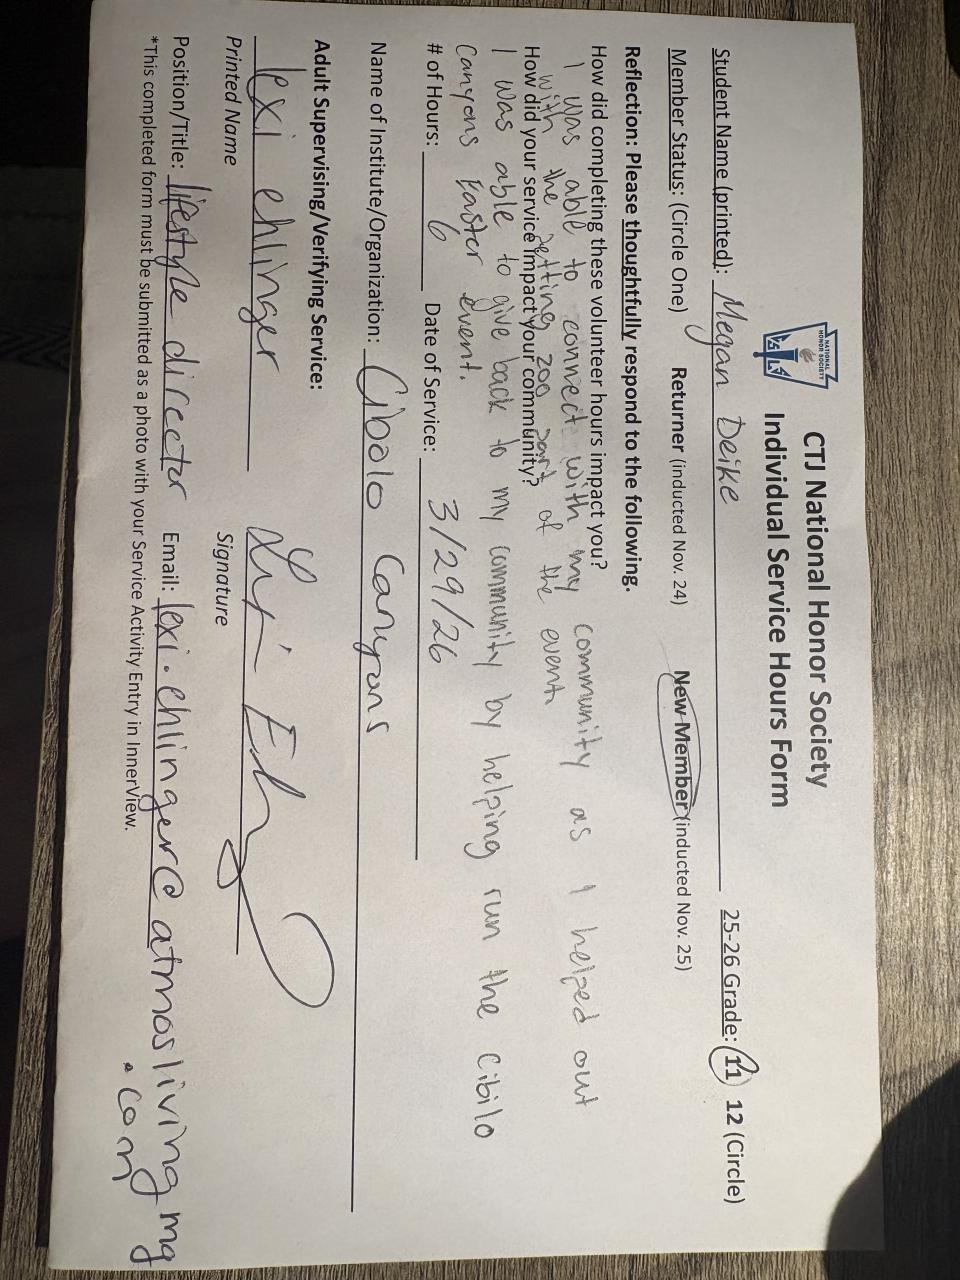 NATIONAL HONOR SOCIETY
CTJ National Honor Society
Individual Service Hours Form
Student Name (printed): Megan Deike 25-26 Grade: 11 12 (Circle)
Member Status: (Circle One) Returner (inducted Nov. 24) New Member (inducted Nov. 25)
Reflection: Please thoughtfully respond to the following.
How did completing these volunteer hours impact you?
I was able to connect with my community as I helped out
with the petting zoo part of the event
How did your service impact your community?
I was able to give back to my community by helping run the Cibilo
Canyons Easter event.
# of Hours: 6 Date of Service: 3/29/26
Name of Institute/Organization: Cibolo Canyons
Adult Supervising/Verifying Service:
lexi ehlinger
Printed Name Signature
Position/Title: lifestyle director Email: lexi.ehlinger@atmoslivingmg
.com
*This completed form must be submitted as a photo with your Service Activity Entry in InnerView.